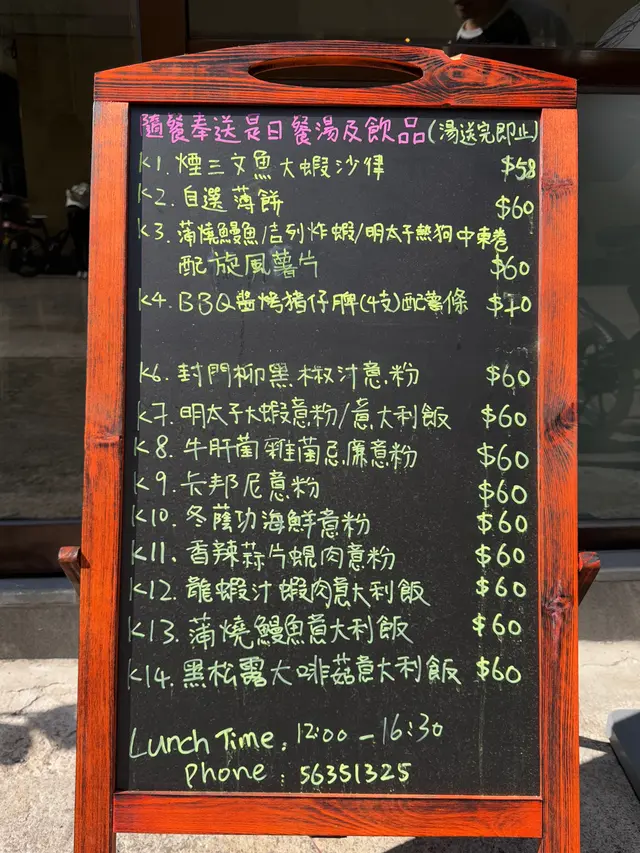 隨餐奉送是日餐湯及飲品(湯送完即止)
K1. 煙三文魚大蝦沙律 $58
K2. 自選薄餅 $60
K3. 蒲燒鰻魚/吉列炸蝦/明太子熱狗中東卷
配旋風薯片 $60
K4. BBQ醬烤豬仔脾(4支)配薯條 $70
K6. 封門柳黑椒汁意粉 $60
K7. 明太子大蝦意粉/意大利飯 $60
K8. 牛肝菌雜菌忌廉意粉 $60
K9. 卡邦尼意粉 $60
K10. 冬蔭功海鮮意粉 $60
K11. 香辣蒜片蜆肉意粉 $60
K12. 龍蝦汁蝦肉意大利飯 $60
K13. 蒲燒鰻魚意大利飯 $60
K14. 黑松露大啡菇意大利飯 $60
Lunch Time : 12:00 - 16:30
Phone : 56351325